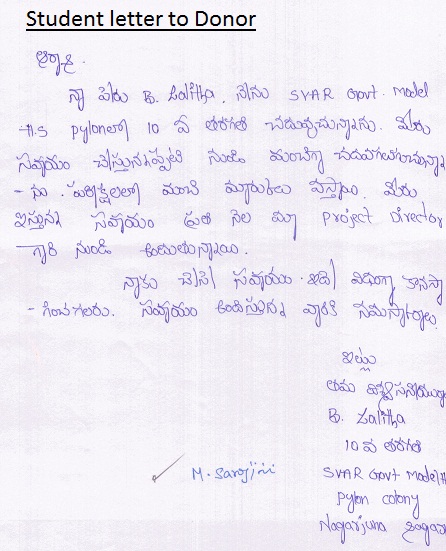 Student letter to Donor
ఆర్యా.
నా పేరు B. Lalitha. నేను SVAR Govt. Model
H.S pylonలో 10 వ తరగతి చదువుచున్నాను. మీరు
సహాయం చేస్తున్నప్పటి నుండి మంచిగా చదవగలుగుచున్నా
- ను. పరీక్షలలో మంచి మార్కులు వస్తాయి. మీరు
ఇస్తున్న సహాయం ప్రతి నెల మా Project Director
గారి నుండి అందుతున్నాయి.
నాకు చేసే సహాయం ఇదే విధంగా కొనసా
- గించగలరు. సహాయం అందిస్తున్న వారికి నమస్కారాలు.
ఇట్లు
తమ
B. Lalitha
10 వ తరగతి
M. Sarojini
SVAR Govt Model H
pylon colony
Nagarjuna Sagar